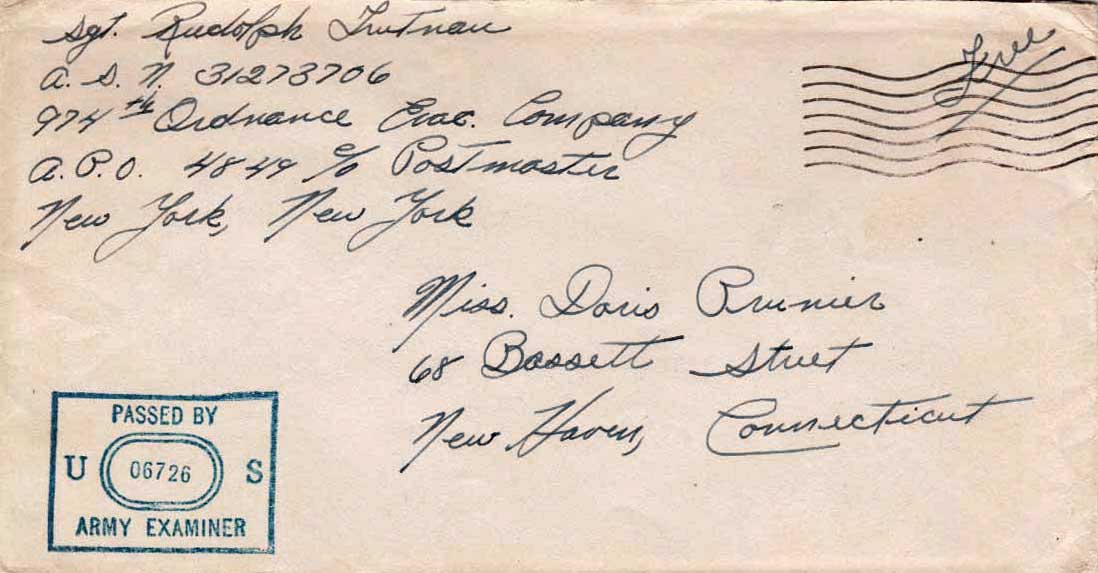 Sgt. Rudolph Trutnau
A. S. N. 31273706
974th Ordnance Evac. Company
A. P. O. 4849 c/o Postmaster
New York, New York
Free
Miss. Doris Prunier
68 Bassett Street
New Haven, Connecticut
PASSED BY
U 06726 S
ARMY EXAMINER